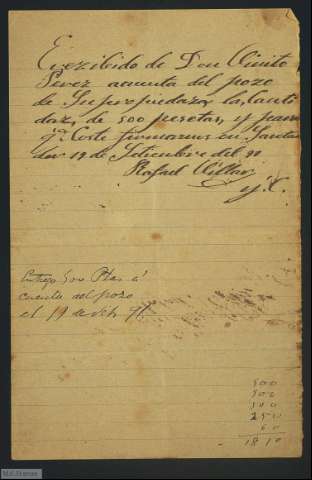 Erezibido de Don Quinto
Perez acuenta del pozo
de Su propiedaz la Canti
daz, de 500 pesetas, y para
q.e Coste firmamos en Santan
der 19 de Setiembre del 90
Rafael Villar
y C.
Entrego 500 Ptas á
cuenta del pozo
el 19 de Seb
500
500
500
250
60
1810